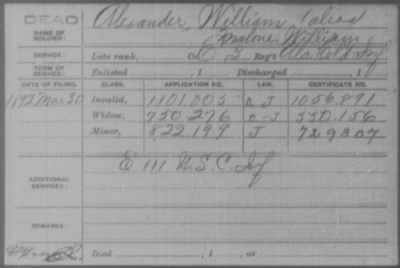 DEAD
NAME OF SOLDIER: Alexander, William, (alias
Malone, William
SERVICE: Late rank, Co. I Reg't
TERM OF SERVICE: Enlisted , 1 Discharged , 1
DATE OF FILING. CLASS. APPLICATION NO. LAW. CERTIFICATE NO.
1892 Mar 30 Invalid, 1101005 J 1056.891
Widow, 750.276 J 550.156
Minor, 822.199 J 729307
ADDITIONAL SERVICES: E 111 U.S.C. Inf
REMARKS:
Died , 1 , at